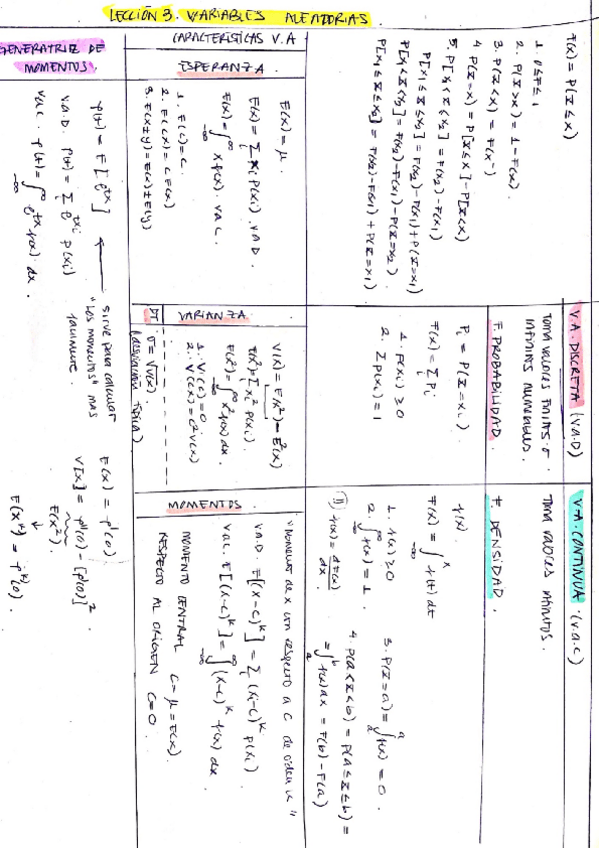 LECCIÓN 3. VARIABLES ALEATORIAS
F(x) = P(X ≤ x)
1. 0 ≤ F ≤ 1
2. P(X > x) = 1 - F(x).
3. P(X < x) = F(x⁻)
4 P(X = x) = P[X ≤ x] - P[X < x]
5. P[x₁ < X ≤ x₂] = F(x₂) - F(x₁)
P[x₁ ≤ X ≤ x₂] = F(x₂) - F(x₁) + P(X = x₁)
P[x₁ < X < x₂] = F(x₂) - F(x₁) - P(X = x₂).
P[x₁ ≤ X ≤ x₂] = F(x₂) - F(x₁) + P(X = x₁)
V.A. DISCRETA (V.a.D)
Toma valores finitos o
infinitos numerables.
F. PROBABILIDAD.
Pᵢ = P(X = xᵢ).
F(x) = Σᵢ Pᵢ
1. P(xᵢ) ≥ 0
2. Σ P(xᵢ) = 1
V.A. CONTINUA (v.a.c)
Toma valores infinitos.
F. DENSIDAD.
f(x).
F(x) = ∫₋∞ˣ f(t) dt
1. f(x) ≥ 0
2. ∫₋∞^∞ f(x) = 1.
f(x) = dF(x)/dx.
3. P(X = a) = ∫ₐᵃ f(x) = 0.
4. P(a < X < b) = P(a ≤ X ≤ b) =
= ∫ₐᵇ f(x) dx = F(b) - F(a)
CARACTERÍSTICAS V.A
ESPERANZA.
E(x) = μ.
E(x) = Σᵢ xᵢ P(xᵢ). V.A.D.
E(x) = ∫₋∞^∞ x f(x). va C.
1. E(C) = C.
2. E(CX) = C E(x)
3. E(X ± Y) = E(x) ± E(y)
VARIANZA
V(X) = E(X²) - E²(X)
E(X²) = Σ xᵢ² P(xᵢ).
E(X²) = ∫₋∞^∞ x² f(x) dx.
1. V(C) = 0
2. V(CX) = C² V(X)
DT
σ = √V(x).
(desviación típica)
MOMENTOS.
"Momentos de x con respecto a C de orden K"
V.A.D. E[(X-C)ᵏ] = Σᵢ (xᵢ-C)ᵏ P(xᵢ).
V.a.C. E[(X-C)ᵏ] = ∫₋∞^∞ (x-C)ᵏ f(x) dx
MOMENTO CENTRAL C = μ = E(x).
RESPECTO AL ORIGEN C = 0.
GENERATRIZ DE
MOMENTOS.
φ(t) = E[eᵗˣ]
V.A.D. φ(t) = Σ eᵗˣⁱ P(xᵢ)
va C. φ(t) = ∫₋∞^∞ eᵗˣ f(x) dx.
sirve para calcular
"los momentos" más
facilmente.
E(x) = φ'(0)
V[X] = φ''(0) - [φ'(0)]²
E(X²).
E(Xᵏ) = φᵏ(0).